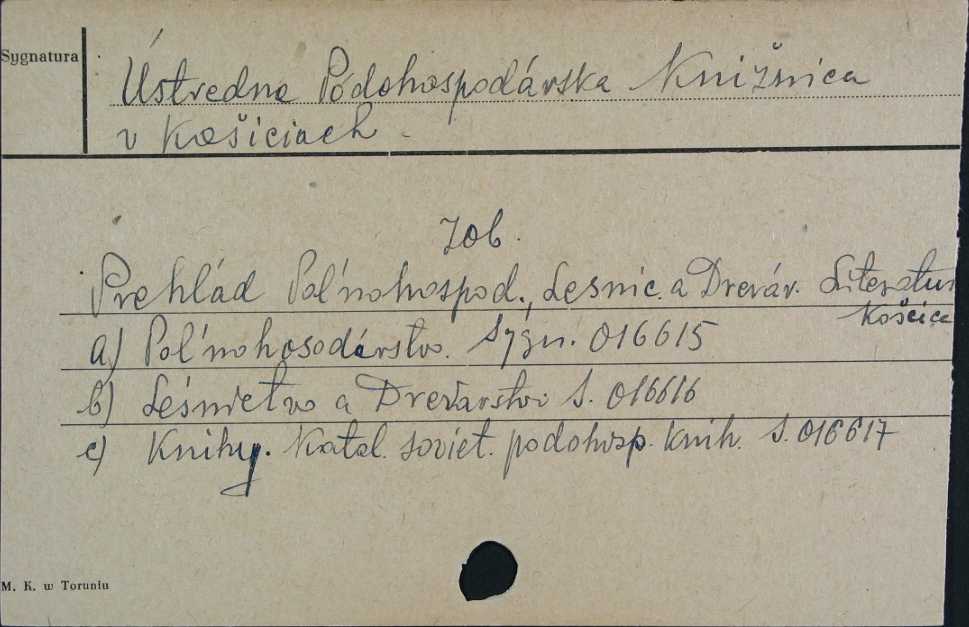 Sygnatura
Ústredna Pódohospodárska Knižnica
v Košiciach.
Zob.
Prehlád Pol'nohospod., Lesnic. a Drevár. Literatur
Košcice
a) Pol'nohosodárstvo. Sygn. 016615
b) Lésnictvo a Drevárstvo S. 016616
c) Knihy. Katal. soviet. podohosp. knih. S. 016617
M. K. w Toruniu